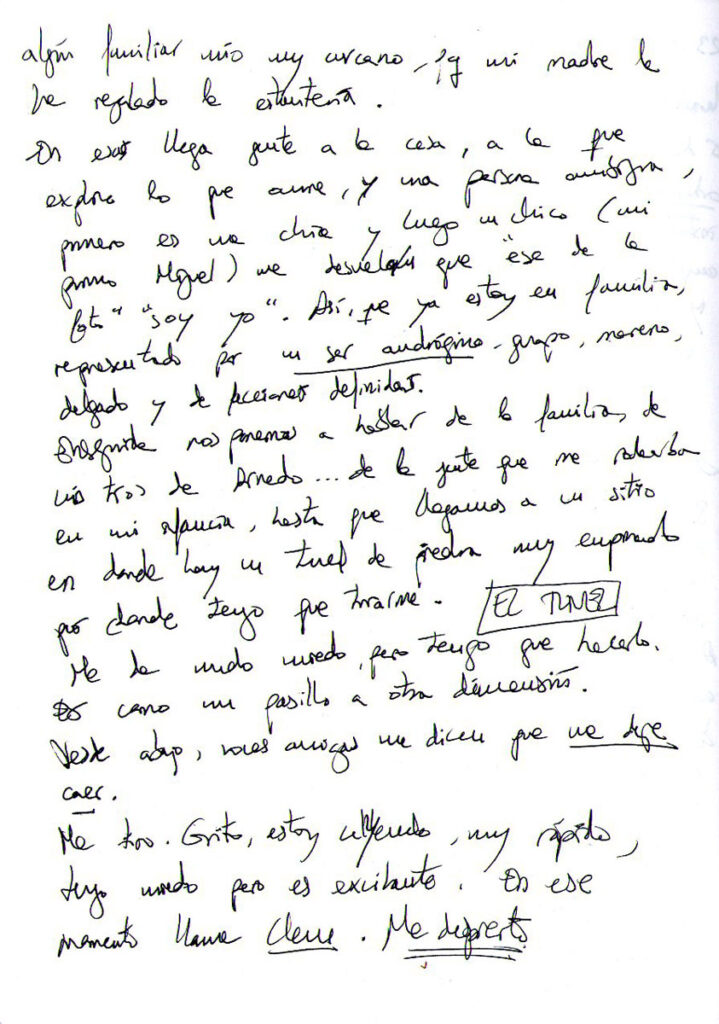 algún familiar mío muy cercano, y mi madre le
ha regalado la estantería.
En esas llega gente a la casa, a la que
explico lo que ocurre, y una persona andrógina,
primero es una chica y luego un chico (mi
primo Miguel) me desvelan que "ese de la
foto" "soy yo". Así, que ya estoy en familia,
representado por un ser andrógino - guapo, moreno,
delgado y de facciones definidas.
Enseguida nos ponemos a hablar de la familia, de
mis tíos de Arnedo... de la gente que me rodeaba
en mi infancia, hasta que llegamos a un sitio
en donde hay un tunel de piedra muy empinado
por donde tengo que tirarme. EL TUNEL
Me da mucho miedo, pero tengo que hacerlo.
Es como un pasillo a otra dimensión.
Desde abajo, voces amigas me dicen que me deje
caer.
Me tiro. Grito, estoy cayendo, muy rápido,
tengo miedo pero es excitante. En ese
momento llama. Me despierto.